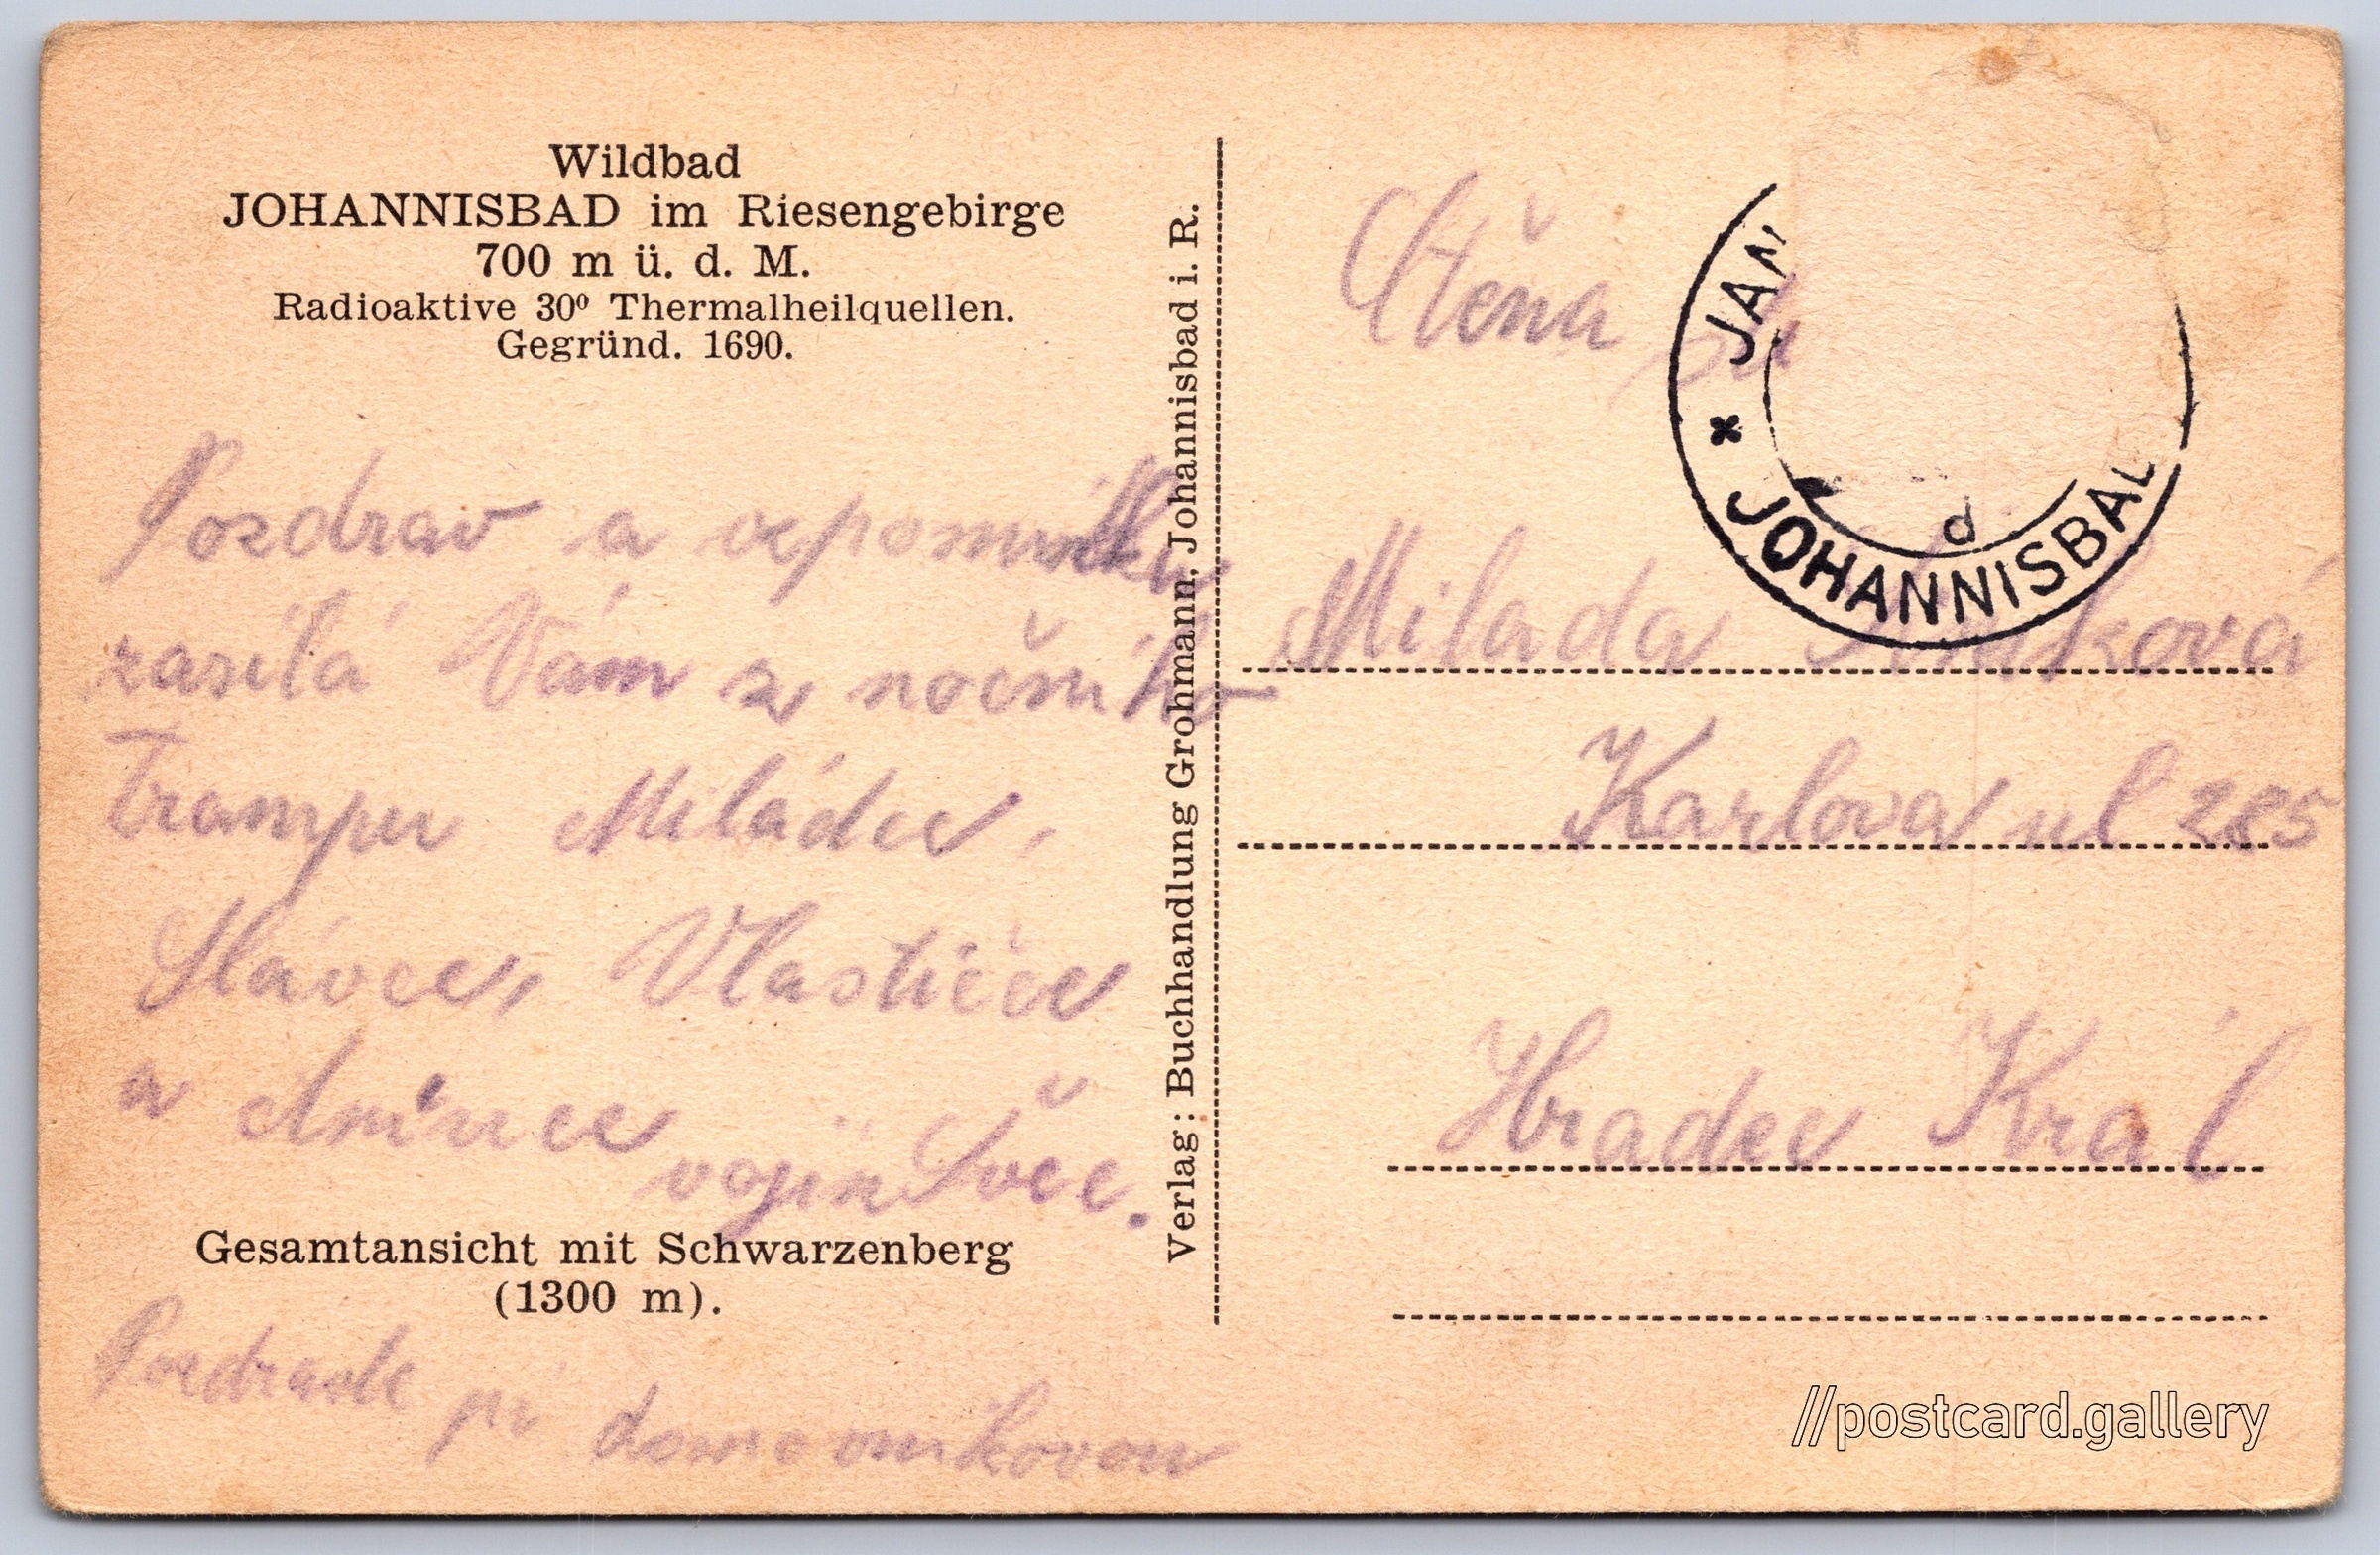 Wildbad
JOHANNISBAD im Riesengebirge
700 m ü. d. M.
Radioaktive 30⁰ Thermalheilquellen.
Gegründ. 1690.
Pozdrav a vzpomínku
zasílá Vám z nočního
Trampu Miláder,
Slávce, Vlastičce
a
vojín Švec.
Gesamtansicht mit Schwarzenberg
(1300 m).
Pozdravte pí domovníkovou
Verlag: Buchhandlung Grohmann, Johannisbad i. R.
Ctěná
JAN
* JOHANNISBAD
d
Milada
Karlova ul 285
Hradec Král
//postcard.gallery